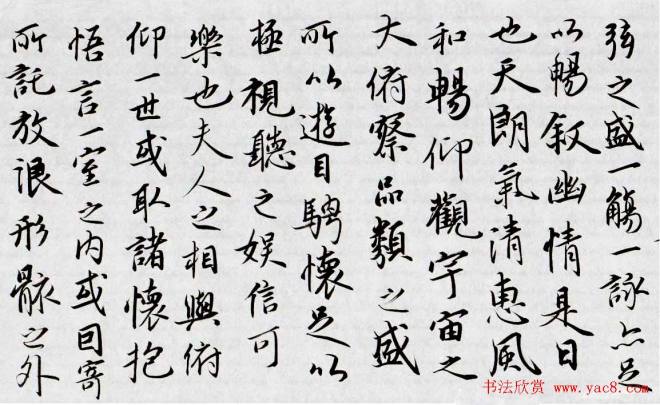 弦之盛一觴一詠亦足
以暢叙幽情是日
也天朗氣清惠風
和暢仰觀宇宙之
大俯察品類之盛
所以遊目騁懷足以
極視聽之娱信可
樂也夫人之相與俯
仰一世或取諸懷抱
悟言一室之内或因寄
所託放浪形骸之外
书法欣赏 www.yac8.com